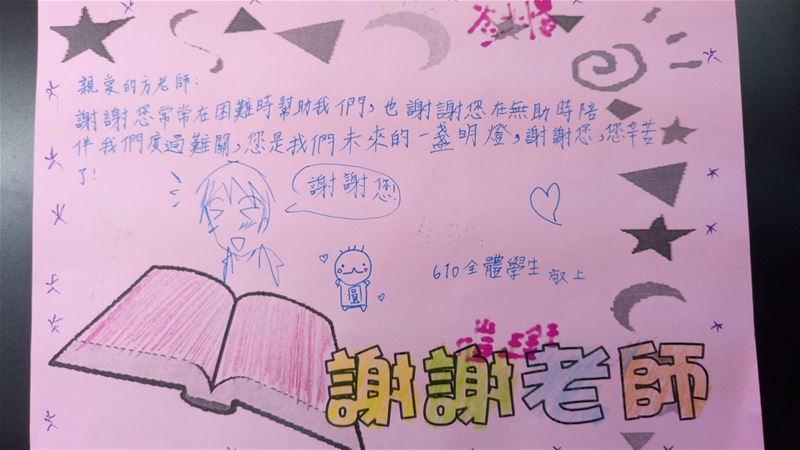 親愛的方老師:
謝謝您常常在困難時幫助我們,也謝謝您在無助時陪
伴我們度過難關,您是我們未來的一盞明燈,謝謝您,您辛苦
了!
謝謝您!
圓
610全體學生 敬上
謝謝老師